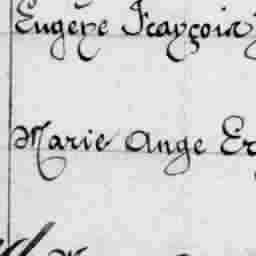 Eugène François
Marie Ange Er